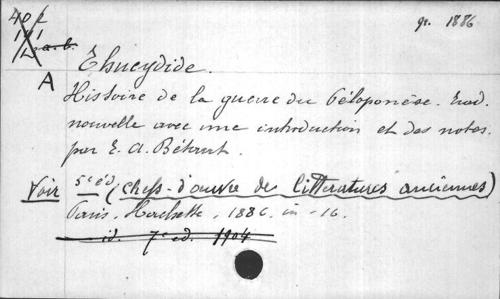 gr. 1886
A
Thucydide.
Histoire de la guerre du Péloponèse. Trad.
nouvelle avec une introduction et des notes
par E. A. Bétant.
Voir 5e éd. (chefs-d'œuvre des littératures anciennes)
Paris, Hachette, 1886. in-16.
— id. 7e ed. 1904